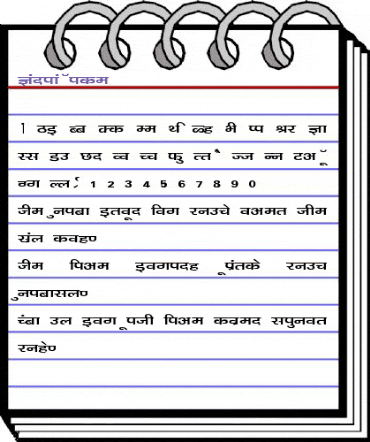 ज्ञंदपाॅ पकम
। ठइ ब्ब क्क म्म थ्र्भि ळ्ह भ्भ प्प श्रर ज्ञा
स्स डउ छद व्व च्च फु त्त ै ज्ज न्न टअ ॅू
ग्ग ल्ल ्र्र 1 2 3 4 5 6 7 8 9 0
जीम ुनपबा इतवूद विग रनउचे वअमत जीम
संल कवहण
जीम पिअम इवगपदह ूप्रंतके रनउच
ुनपबासलण
चंबा उल इवग ूपजी पिअम कव्रमद सपुनवत
रनहेण